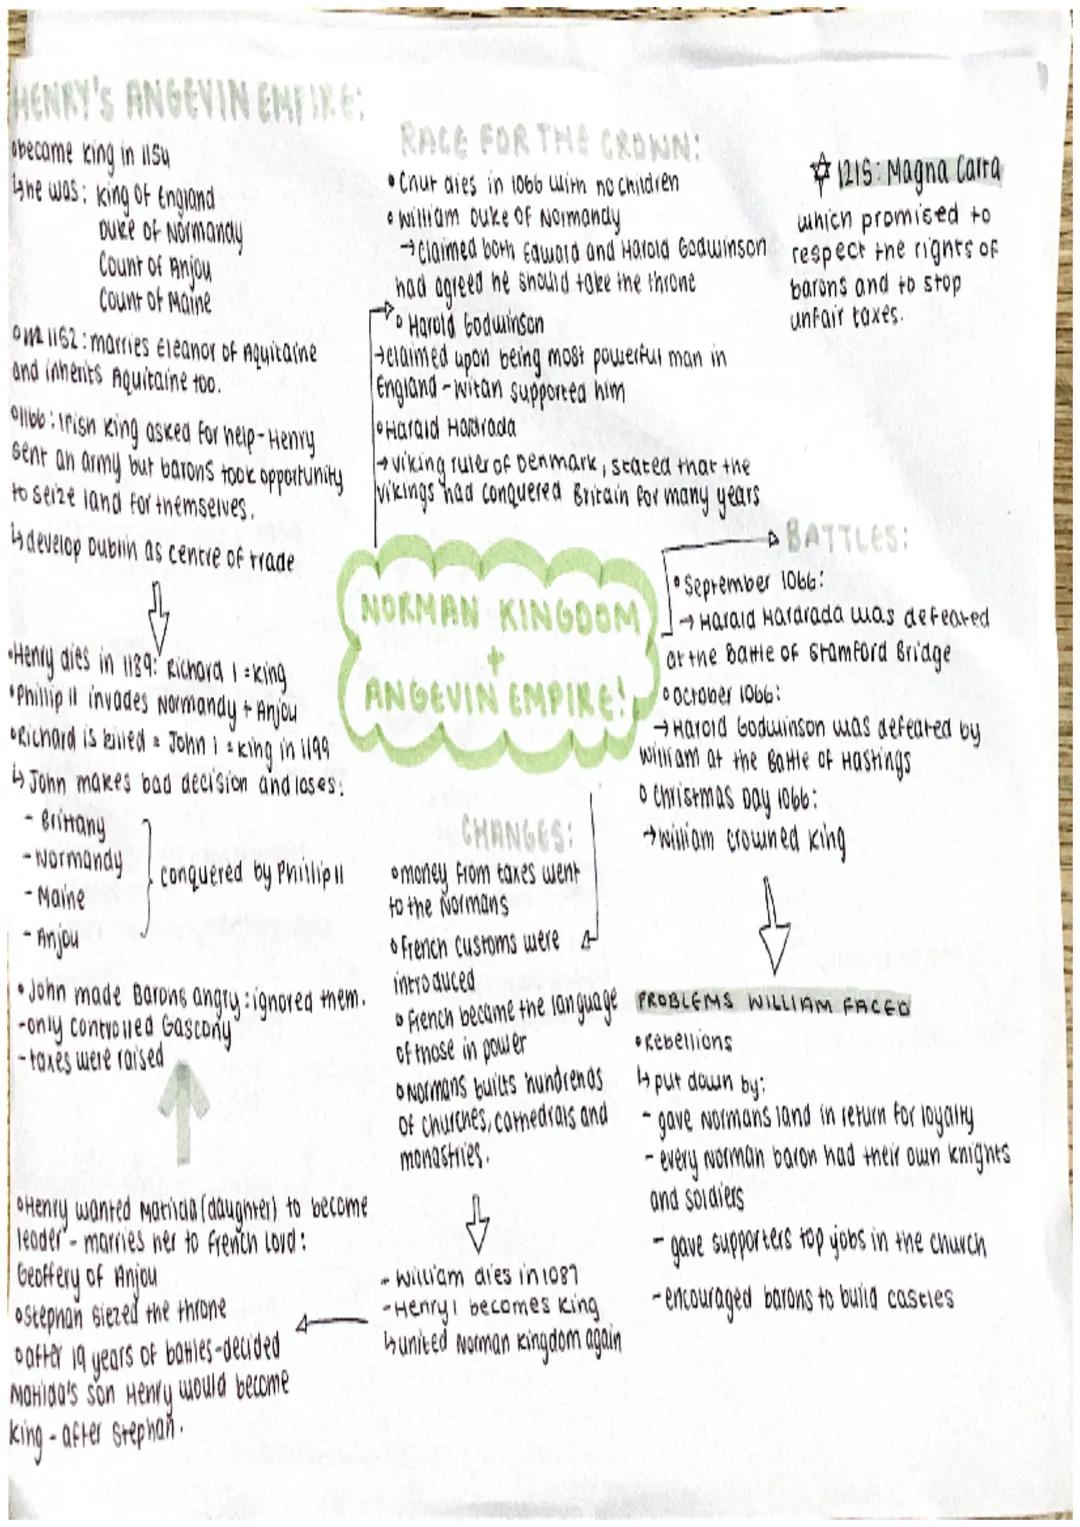 HENRY'S ANGEVIN EMPIRE:
become king in 1154
↳he was: King of England
Duke of Normandy
Count of Anjou
Count of Maine
1152: marries Eleanor of Aquitaine
and inherits Aquitaine too.
1166: Irish king asked for help - Henry
sent an army but barons took opportunity
to seize land for themselves.
↳develop Dublin as centre of trade
•Henry dies in 1189: Richard 1 = king
•Phillip II invades Normandy + Anjou
•Richard is killed = John 1 = king in 1199
↳ John makes bad decision and loses:
- Brittany
- Normandy
- Maine
- Anjou
conquered by Phillip II
• John made Barons angry: ignored them.
-only controlled Gascony
-taxes were raised
•Henry wanted Matilda (daughter) to become
leader - marries her to French Lord:
Geoffery of Anjou
•Stephan siezed the throne
•after 19 years of battles - decided
Matilda's son Henry would become
king - after Stephan.
RACE FOR THE CROWN:
• Cnut dies in 1066 with no children
• William Duke of Normandy
→ claimed both Edward and Harold Godwinson
had agreed he should take the throne
• Harold Godwinson
→claimed upon being most powerful man in
England - Witan supported him
•Harald Hardrada
→ viking ruler of Denmark, stated that the
vikings had conquered Britain for many years
NORMAN KINGDOM
+
ANGEVIN EMPIRE!
CHANGES:
•money from taxes went
to the Normans
• French customs were
introduced
• French became the language
of those in power
•Normans builts hundrends
of churches, cathedrals and
monastries.
- William dies in 1087
- Henry 1 becomes king
↳united Norman kingdom again
1215: Magna Carta
which promised to
respect the rights of
barons and to stop
unfair taxes.
BATTLES:
• September 1066:
→ Harald Hardrada was defeated
at the Battle of Stamford Bridge
• October 1066:
→ Harold Godwinson was defeated by
William at the Battle of Hastings
• Christmas Day 1066:
→ William crowned king
PROBLEMS WILLIAM FACED
• Rebellions
↳ put down by:
- gave Normans land in return for loyalty
- every Norman baron had their own knights
and soldiers
- gave supporters top jobs in the church
- encouraged barons to build castles